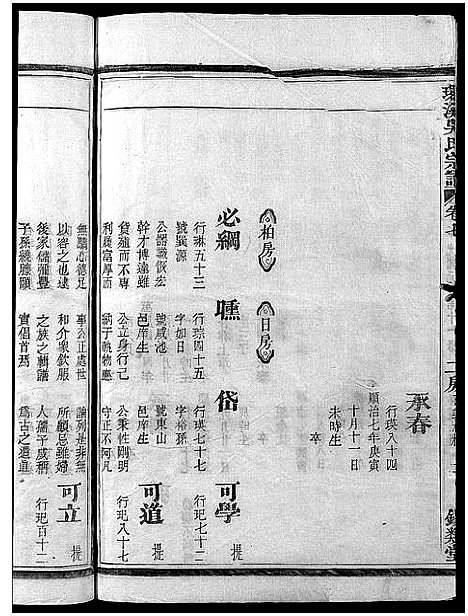 吳氏宗譜
卷七
二房
承春
行瑛八十四
順治七年庚寅
十月十一日
未時生
卒
柏房
日房
必綱
行琳五十三
號巽源
公器識恢宏
幹才博達雖
貨殖而不專
利晨富厚而
無驕心德足
以容之也遠
後家儲彌豐
子孫繞膝頤
行琮四十五
字如日
號咸池
邑庠生
公立身行己
事公正處世
和介衆欽服
之族之
實倡首焉
岱
行瑛七十七
字裕孫
號東山
邑庠生
公秉性剛明
守正不阿凡
論列是非無
所顧忌雖婦
人孺子咸稱
爲古之遺直
可學
行玘七十二
提
可道
行玘八十七
提
可立
行玘百十二
提